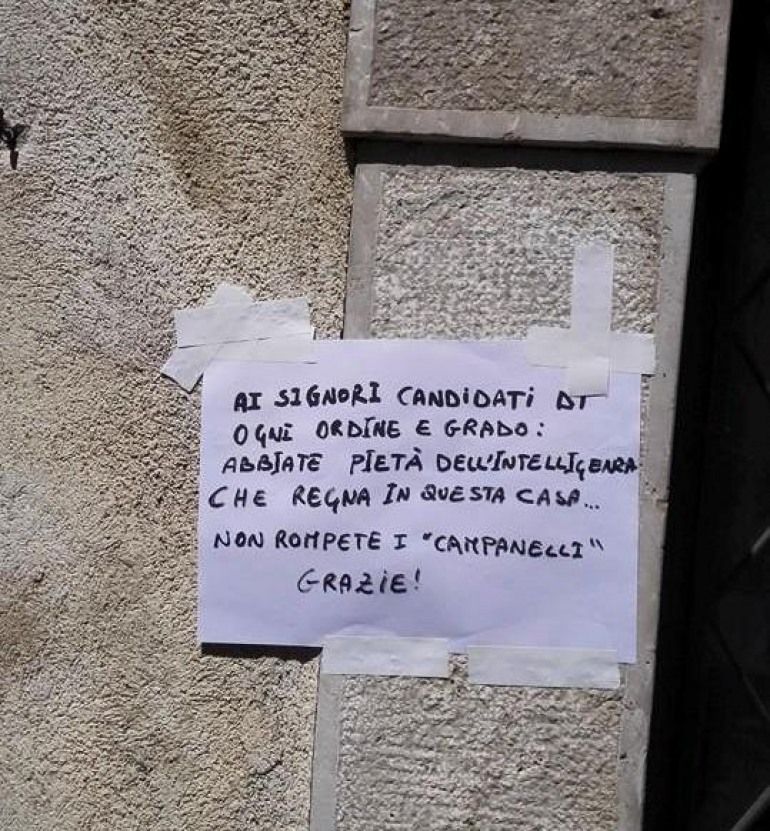 AI SIGNORI CANDIDATI DI
OGNI ORDINE E GRADO:
ABBIATE PIETÀ DELL'INTELLIGENZA
CHE REGNA IN QUESTA CASA...
NON ROMPETE I "CAMPANELLI"
GRAZIE!